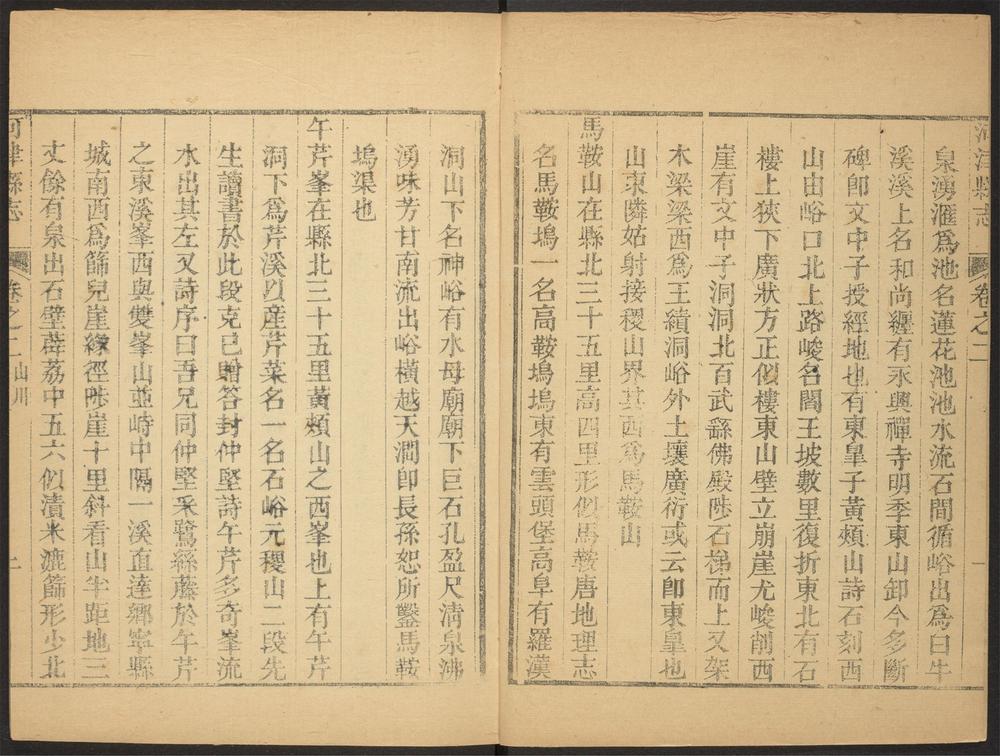 河津縣志
卷之二
泉湧滙爲池名蓮花池池水流石間循峪出爲白牛
溪溪上名和尚纒有永興禪寺明季東山卸今多斷
碑卽文中子授經地也有東臯子黃頰山詩石刻西
山由峪口北上路峻名閻王坡數里復折東北有石
樓上狹下廣狀方正似樓東山壁立崩崖尤峻削西
崖有文中子洞洞北百武繇佛殿陟石梯而上又架
木梁梁西爲王績洞峪外土壤廣衍或云卽東臯也
山東隣姑射接稷山界其西爲馬鞍山
馬鞍山在縣北三十五里高四里形似馬鞍唐地理志
名馬鞍塢一名高鞍塢塢東有雲頭堡高阜有羅漢
洞山下名神峪有水母廟廟下巨石孔盈尺淸泉沸
湧味芳甘南流出峪橫越天澗卽長孫恕所鑿馬鞍
塢渠也
午芹峯在縣北三十五里黃頰山之西峯也上有午芹
洞下爲芹溪以産芹菜名一名石峪元稷山二段先
生讀書於此段克已贈答封仲堅詩午芹多奇峯流
水出其左又詩序曰吾兄同仲堅采鷺絲藤於午芹
之東溪峯西與雙峯山並峙中隔一溪直達鄕寧縣
城南西爲篩兒崖緣徑陟崖十里斜看山半距地三
丈餘有泉出石壁薜荔中五六似漬米漉篩形少北
河津縣志
卷之二
山川
上